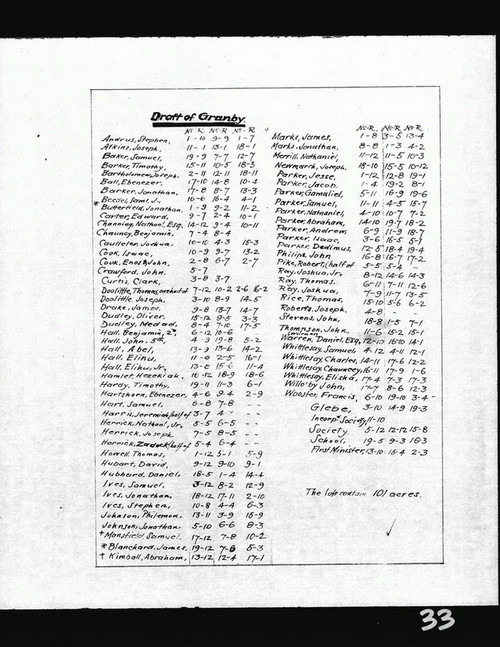 Draft of Granby.
No R. No-R No-R
Andrus, Stephen, 1-10 9-9 1-7
Atkins, Joseph, 11-1 13-1 18-1
Baker, Samuel, 19-9 7-7 12-7
Barker, Timothy, 15-11 10-5 18-3
Bartholomew, Joseph, 2-11 12-11 18-11
Ball, Ebenezer, 17-10 14-8 10-4
Barker, Jonathan, 17-8 8-7 13-3
10-6 16-4 4-1
Butterfield, Jonathan, 1-9 9-2 11-2
Carter, Edward, 9-7 2-4 10-1
Channing, Nathanl, Esq, 14-12 9-4 10-11
Chauncy, Benjamin, 7-4 8-4
Joshua, 10-10 4-3 15-3
Cook, Isaac, 10-9 9-7 13-2
Cook, Enos & John, 2-8 6-7 2-7
Crawford, John. 5-7
Curtis, Clark, 3-8 3-7
Doolittle, Thomas, 7-12 10-2 2-6 6-2
Doolittle, Joseph, 3-10 8-9 14-5
Drake, James, 9-8 13-7 14-7
Dudley, Oliver, 15-12 9-5 3-3
Dudley, Medad, 8-4 7-10 17-5
Hall, Benjamin, 2d, 6-12 10-6
Hall, John, 5th, 4-3 19-8 5-2
Hall, Abel, 13-9 13-6 14-2
Hall, Elihu, 11-0 2-5 16-1
Hall, Elihu, Jr, 13-8 15-6 11-4
Hamlet, Hezekiah, 10-12 16-9 18-6
Hardy, Timothy, 19-11 11-3 6-1
Hartshorn, Ebenezer, 4-6 9-4 2-9
Hart, Samuel, 6-8 7-8
Harris, Jeremiah, (half of 3-7 4- - -
Herrick, Nathanl, Jr, 5-5 6-5 - -
Herrick, Joseph, 7-5 8-5 - -
Herrick, Zadock (half of 5-4 6-4 - -
Howell, Thomas, 1-12 5-1 5-9
Hubart, David, 9-12 9-10 9-1
Hubbard, Daniel, 18-5 1-4 14-4
Ives, Samuel, 3-12 8-2 12-9
Ives, Jonathan, 18-12 17-11 2-10
Ives, Stephen, 10-8 4-4 6-3
Johnson, Philemon, 13-11 3-9 15-9
Johnson, Jonathan 5-10 6-6 8-3
† Mansfield Samuel, 17-12 7-8 10-2
* Blanchard, James, 19-12 7-6 5-3
† Kimball, Abraham, 13-12 12-4 17-1
No R. No-R No-R
Marks, James, 1-8 3-5 13-4
Marks, Jonathan, 8-8 1-3 4-2
Merill, Nathaniel, 11-12 11-5 10-3
Newmarch, Joseph, 18-10 15-5 10-12
Parker, Jesse, 1-12 12-8 19-1
Parker, Jacob, 1-4 19-2 8-1
Parker, Gamaliel, 5-11 16-9 19-6
Parker, Samuel, 11-11 4-5 15-7
Parker, Nathaniel, 4-10 10-7 7-2
Parker, Abraham, 14-10 19-7 18-2
Parker, Andrew 6-9 11-9 18-7
Parker, Isaac, 3-6 16-5 5-1
Parker, Dedimus, 12-5 18-4 19-4
Philips, John 16-8 16-7 17-2
Pike, Robert, (half of 5-5 5-4
Ray, Joshua, Jr. 8-12 14-6 14-3
Ray, Thomas, 6-11 7-11 12-6
Ray, Joshua, 7-9 11-7 13-5
Rice, Thomas, 15-10 5-6 6-2
Roberts, Joseph, 4-8 -
Stevens, John, 18-8 1-5 7-1
Thompson, John, 11-6 15-2 15-1
Warren, Daniel, Esq, 12-10 16-10 14-1
Whittlesay, Samuel, 4-12 4-11 12-1
Whittlesay, Charles, 14-11 17-6 12-2
Whittlesay, Chauncey, 16-11 17-9 1-6
Whittlesay, Elisha, 17-4 7-3 17-3
Willoby, John, 17-7 8-6 12-3
Wooster, Francis, 6-10 19-10 3-4
Glebe, 3-10 14-9 19-3
Incorpd Society 11-10
Society 5-12 12-12 15-8
School, 19-5 9-3 16-3
First Minister, 13-10 15-4 2-3
The lots contain 101 acres.
33